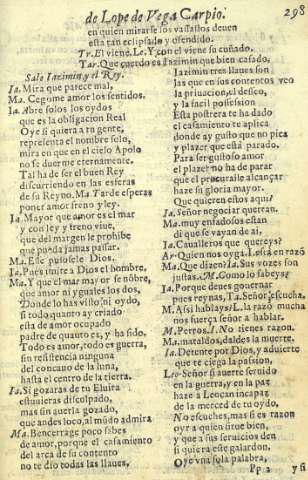 de Lope de Vega Carpio. 298
en quien mirarse los vassallos deuen
esta tan eclipsado y ofendido.
Tr. El viene. Le. Y con el viene su cuñado.
Tar. Que cuerdo es Iazimin que bien casado,
Sale Iazimin y el Rey.
Ia. Mira que parece mal,
Ma. Cegome amor los sentidos.
Ia. Abre solos los oydos
que es la obligacion Real
Oye si quiera a tu gente,
representa el nombre solo,
mira en que en el cielo Apolo
no se duerme eternamente.
Tal ha de ser el buen Rey
discurriendo en las esferas
de su Reyno. Ma. Tarde esperas
poner amor freno y ley.
Ia. Mayor que amor es el mar
y con ley y freno viue,
que del margen le prohibe
que pueda jamas passar.
Ma. Esse pusosele Dios.
Ia. Pues imite a Dios el hombre,
Ma. Y que el mar mayor se nõbre,
que amor ni yguales los dos,
Donde lo has visto, ni oydo,
si todo quanto ay criado
esta de amor ocupado
padre de quanto es, y ha sido.
Todo es amor, todo es guerra,
sin resistencia ninguna
del concauo de la luna,
hasta el centro de la tierra.
Ia. Si gozaras de tu Eluira
estuuieras disculpado,
mas sin querla gozado,
que andes loco, al mũdo admira
Ma. Bencerrage poco sabes
de amor, porque el casamiento
del arca de su contento
no te dio todas las llaues,
Iazimin tres llaues son
las que en sus contentos veo
la priuacion, el desseo,
y la facil possession
Esta postrera te ha dado
el casamiento te aplica
donde ay gusto que no pica
y plazer que està parado.
Para ser gustoso amor
el plazer no ha de parar
que el procurarle alcançar
haze su gloria mayor.
Que quieren estos aqui?
Ia. Señor negociar querran.
Ma. muy enfadosos estan
di que se vayan de ai,
Ia. Caualleros que quereys?
Ar. Quien nos oyga. I. està en razõ
Ma. Que dizen? Ia. Sus vozes son
justas. M. Como lo sabeys?
Ia. Porque deues gouernar
pues reynas, Ta. Señor, escucha.
M. Assi hablays? L. la razõ mucha
nos fuerça señor a hablar.
M. Perros. I. No tienes razon.
Ma. mataldos, daldes la muerte.
Ia. Detente por Dios, y aduierte
que te ciega la passion,
Leo Señor si auerte seruido
en la guerra, y en la paz
haze a Leocan incapaz
de la merced de tu oydo,
No escuches, mas si es razon
oyr a quien sirue bien,
y que a sus seruicios den
si quiera este galardon.
Oye vna sola palabra,
Pp 2 y si